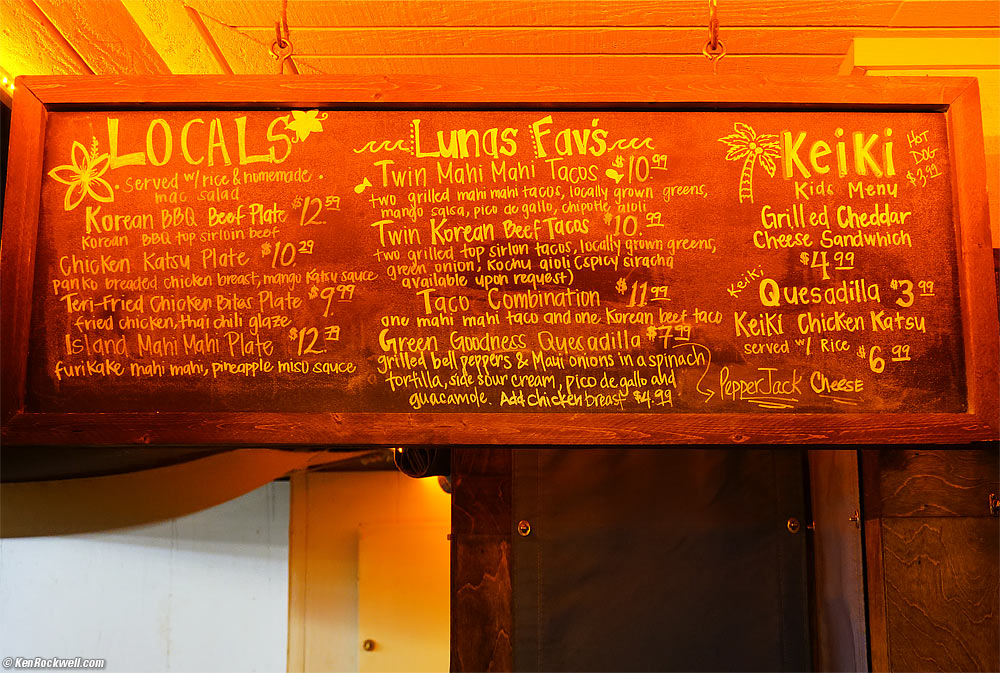 LOCALS
• served w/ rice & homemade •
mac salad
Korean BBQ Beef Plate $12.59
Korean BBQ top sirloin beef
Chicken Katsu Plate $10.29
panko breaded chicken breast, mango katsu sauce
Teri-Fried Chicken Bites Plate $9.99
fried chicken, thai chili glaze
Island Mahi Mahi Plate $12.79
furikake mahi mahi, pineapple miso sauce
Lunas Fav's
Twin Mahi Mahi Tacos $10.99
two grilled mahi mahi tacos, locally grown greens,
mango salsa, pico de gallo, chipotle aioli
Twin Korean Beef Tacos $10.99
two grilled top sirlon tacos, locally grown greens,
green onion, kochu aioli (spicy siracha
available upon request)
Taco Combination $11.99
one mahi mahi taco and one Korean beef taco
Green Goodness Quesadilla $7.99
grilled bell peppers & Maui onions in a spinach
tortilla, side sour cream, pico de gallo and
guacamole. Add chicken breast $4.99
PepperJack Cheese
KeiKi
Kids Menu
HOT
DOG
$3.99
Grilled Cheddar
Cheese Sandwhich
$4.99
Keiki
Quesadilla $3.99
KeiKi Chicken Katsu
served w/ Rice $6.99
© KenRockwell.com